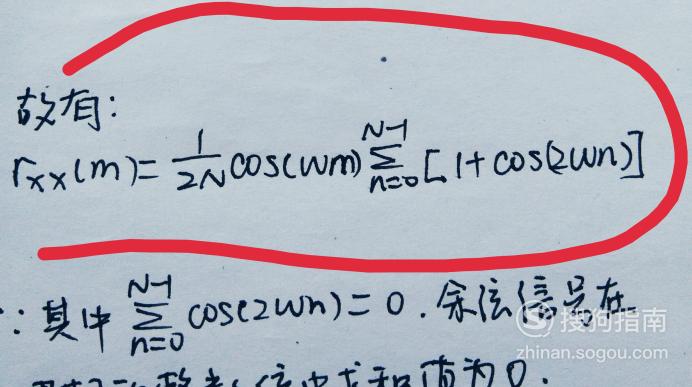 故有:
r_xx(m)=1/2N cos(wm) Σ_{n=0}^{N-1} [1+cos(2wn)]
:其中 Σ_{n=0}^{N-1} cos(2wn)=0.余弦信号在
搜狗指南
zhinan.sogou.com
求和值为0.